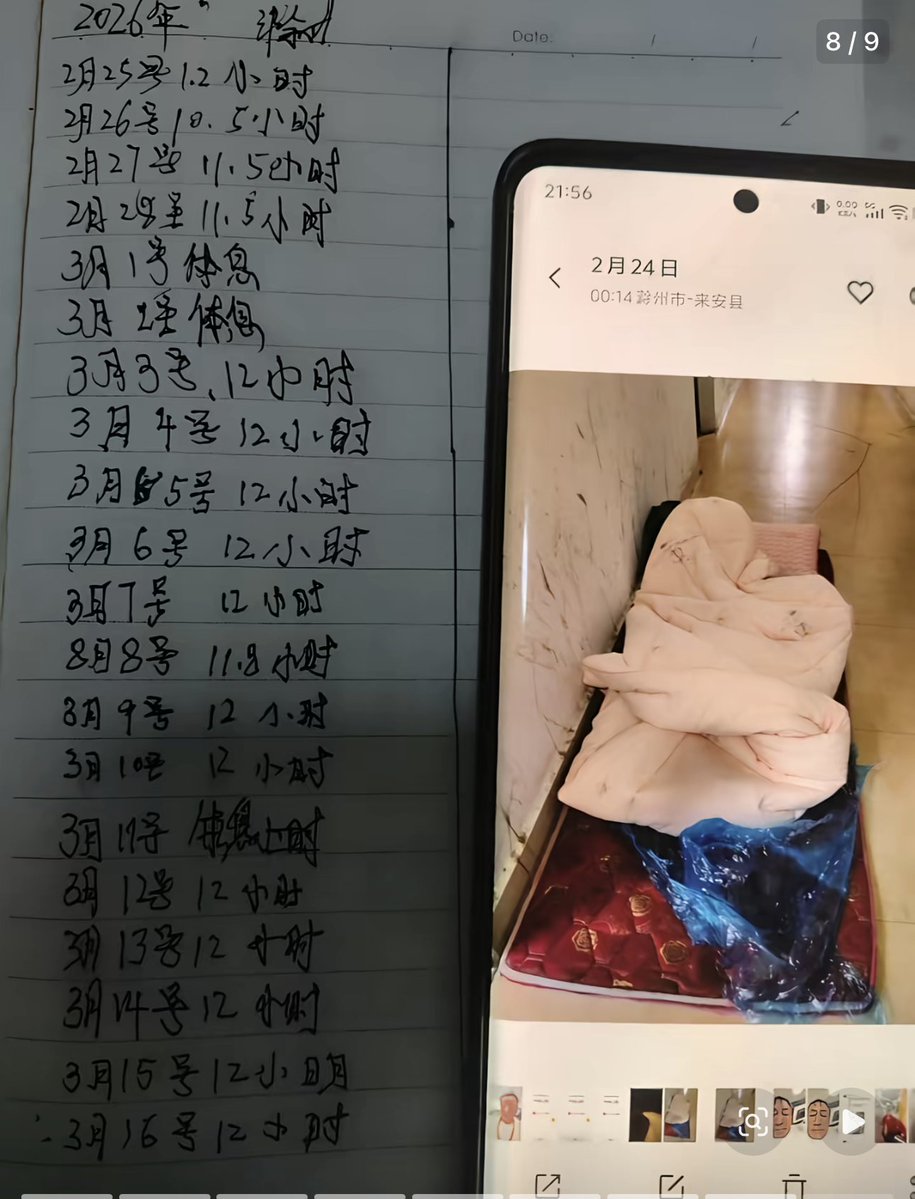 2026年
2月25号 1.2小时
2月26号 10.5小时
2月27号 11.5小时
2月28号 11.5小时
3月1号 休息
3月2号 休息
3月3号、12小时
3月4号 12小时
3月5号 12小时
3月6号 12小时
3月7号 12小时
8月8号 11.8小时
3月9号 12小时
3月10号 12小时
3月11号 休息
3月12号 12小时
3月13号 12小时
3月14号 12小时
3月15号 12小时
3月16号 12小时
Date:
8 / 9
21:56
2月24日
00:14 滁州市-来安县